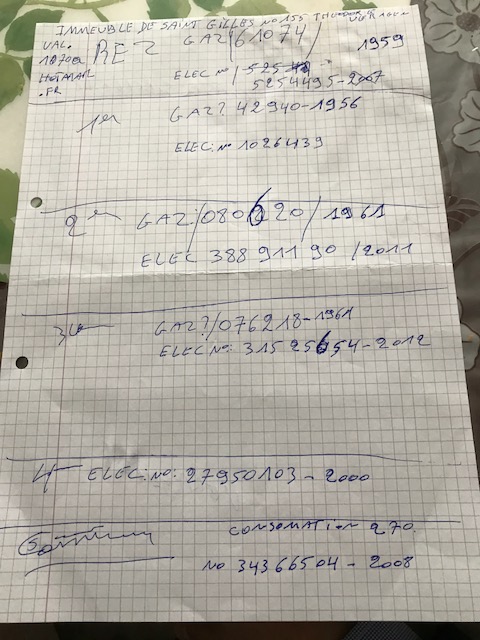 IMMEUBLE DE SAINT GILLES NO 155 THEODOR
VAL.
1070@
HOTMAIL
.FR
REZ GAZ/61074/ 1959
ELEC NO/525
5254495-2007
1er GAZ? 42940-1956
ELEC. NO 1026439
2em GAZ/080620/1961
ELEC 388 911 90 /2011
3em GAZ?/076218-1961
ELEC NO: 31525654-2012
4em ELEC: NO: 27950103-2000
CONSOMATION 270.
NO 34366504-2008